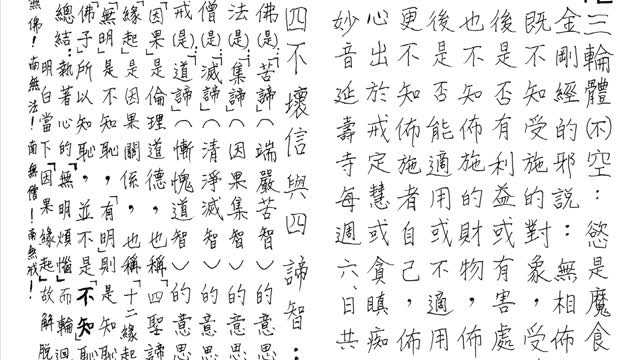 三輪體(不)空：慾是魔食
金剛經的邪說：無相佈
既不知受施的對象，受
後是否有利益或有害處
也不知佈施的財物，佈
後是否能適用不適用，
更不知佈施者自己，佈
心出於戒定慧或貪瞋痴
妙音延壽寺每週六、日共
四不壞信與四諦智：
佛(是)「苦諦」（端嚴苦智）的意思
法(是)「集諦」（因果集智）的意思
僧(是)「滅諦」（清淨滅智）的意思
戒(是)「道諦」（慚愧道智）的意思
「因果」是倫理道德，也稱「四聖諦
「緣起」是因果關係，也稱「十二緣起
「無明」是不知恥，「有明」則是知恥
佛子所以知恥，並不是「不知恥
總結：執著心的「無明煩惱」而輪迴
明白當下「因果緣起」故解脫
無佛！南無法！南無僧！南無戒！